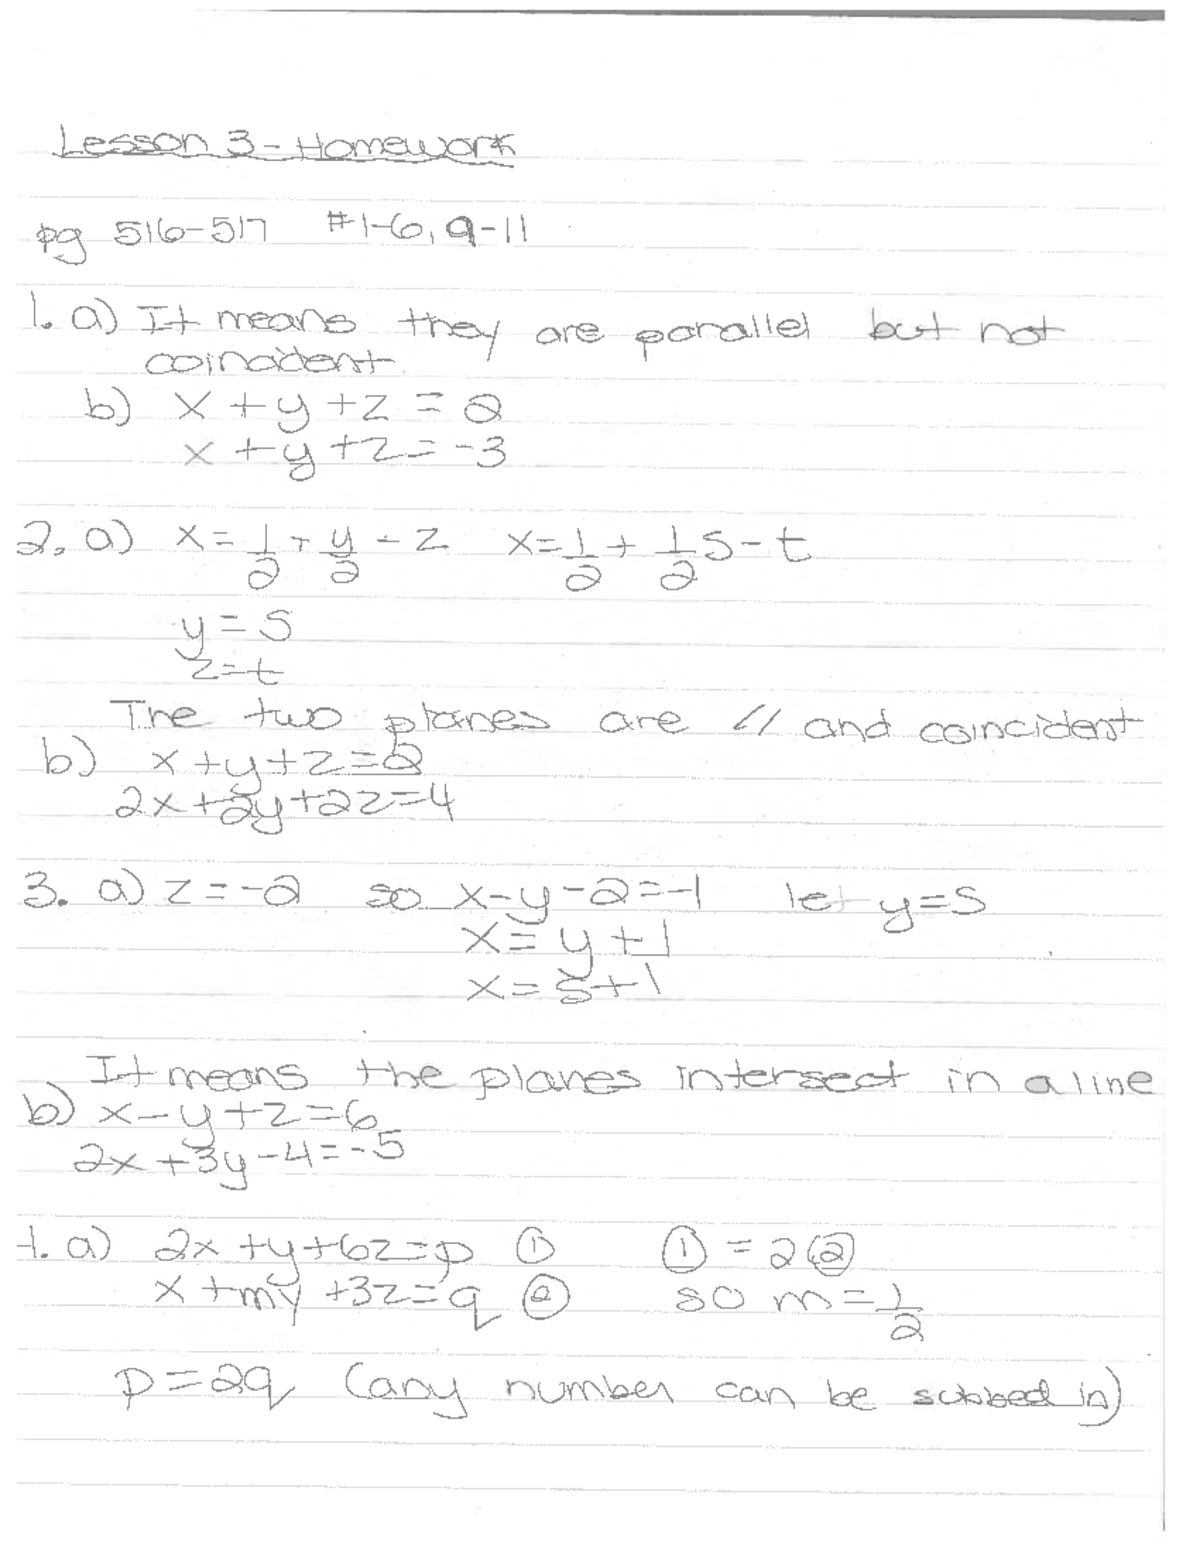 Lesson 3 - Homework
pg 516-517 #1-6, 9-11
1. a) It means they are parallel but not
coincident.
b) x + y + z = 2
x + y + z = -3
2. a) x = 1/2 + y/2 - z x = 1/2 + 1/2 s - t
y = s
z = t
The two planes are // and coincident
b) x + y + z = 2
2x + 2y + 2z = 4
3. a) z = -2 so x - y - 2 = -1 let y = s
x = y + 1
x = s + 1
It means the planes intersect in a line
b) x - y + z = 6
2x + 3y - 4 = -5
a) 2x + y + 6z = p ① ① = 2②
x + my + 3z = q ② so m = 1/2
p = 2q (any number can be subbed in)